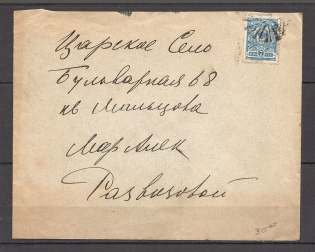 Царское Село
Бульварная 68
кв Мальцова
Мар Алек
Развозовой
30